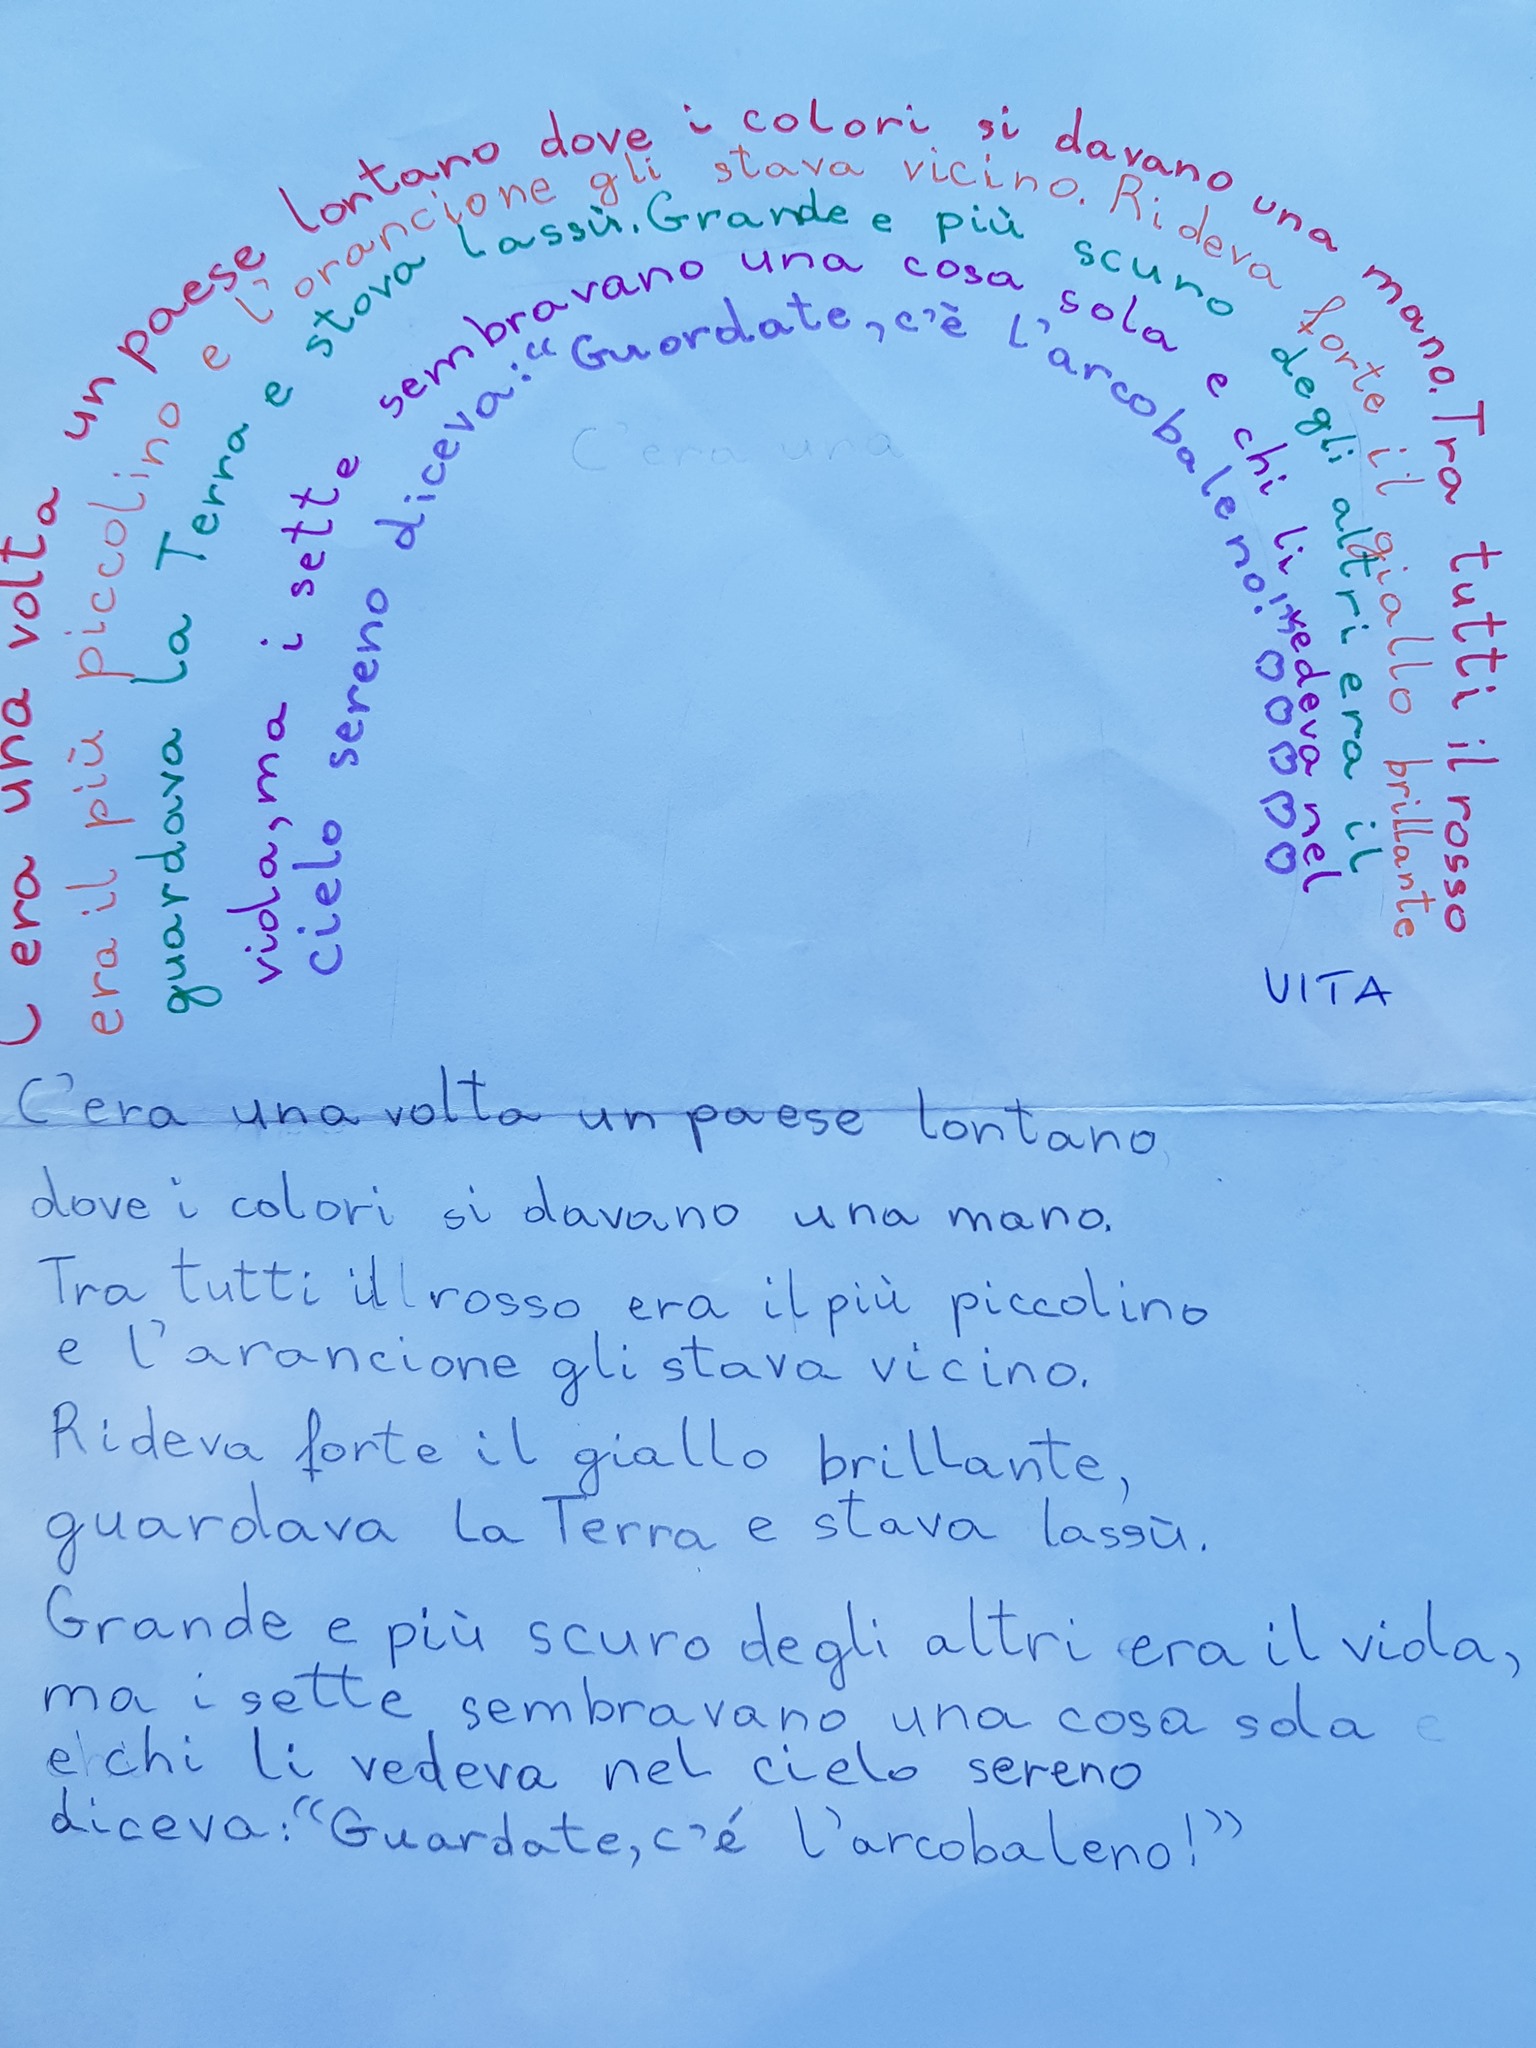 C era una volta un paese lontano dove i colori si davano una mano. Tra tutti il rosso
era il più piccolino e l'orancione gli stava vicino. Rideva forte il giallo brillante
guardava la Terra e stava lassù. Grande e più scuro degli altri era il
viola, ma i sette sembravano una cosa sola e chi li vedeva nel
cielo sereno diceva: "Guardate, c'è l'arcobaleno!"
C'era una
VITA
C'era una volta un paese lontano
dove i colori si davano una mano.
Tra tutti il rosso era il più piccolino
e l'arancione gli stava vicino.
Rideva forte il giallo brillante,
guardava la Terra e stava lassù.
Grande e più scuro degli altri era il viola,
ma i sette sembravano una cosa sola e
e chi li vedeva nel cielo sereno
diceva: "Guardate, c'é l'arcobaleno!"